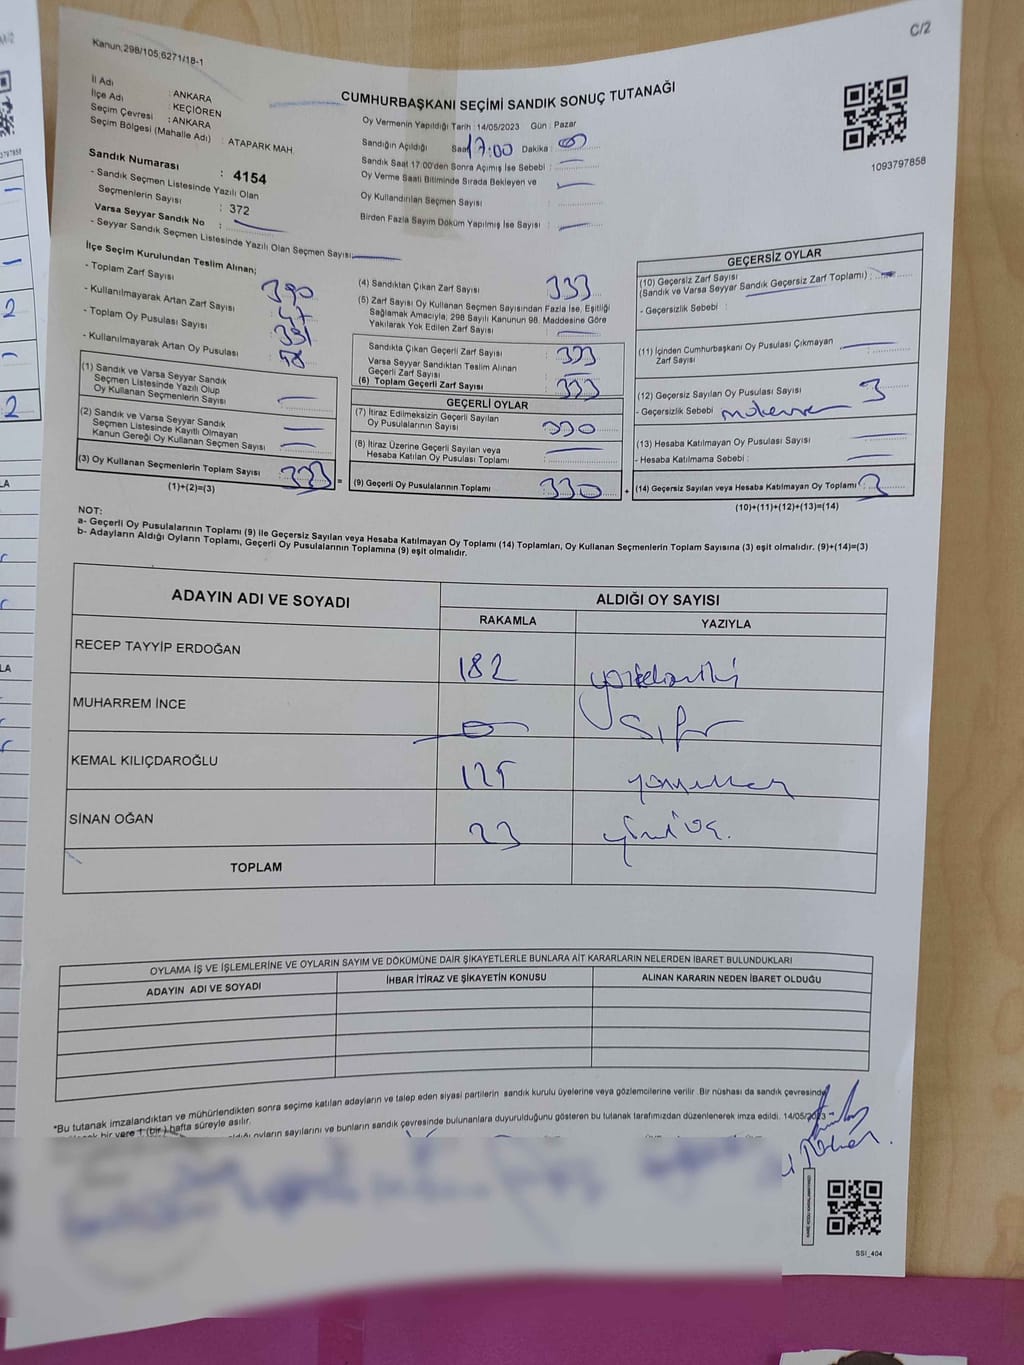 C/2
Kanun;298/105;6271/18-1
İl Adı : ANKARA
İlçe Adı : KEÇİÖREN
Seçim Çevresi : ANKARA
Seçim Bölgesi (Mahalle Adı) : ATAPARK MAH.
Sandık Numarası : 4154
- Sandık Seçmen Listesinde Yazılı Olan
Seçmenlerin Sayısı : 372
Varsa Seyyar Sandık No :
- Seyyar Sandık Seçmen Listesinde Yazılı Olan Seçmen Sayısı:
CUMHURBAŞKANI SEÇİMİ SANDIK SONUÇ TUTANAĞI
Oy Vermenin Yapıldığı Tarih : 14/05/2023 Gün : Pazar
Sandığın Açıldığı Saat 17:00 Dakika :
Sandık Saat 17:00'den Sonra Açımış İse Sebebi :
Oy Verme Saati Bitiminde Sırada Bekleyen ve
Oy Kullandırılan Seçmen Sayısı :
Birden Fazla Sayım Döküm Yapılmış İse Sayısı :
1093797858
İlçe Seçim Kurulundan Teslim Alınan;
- Toplam Zarf Sayısı 390
- Kullanılmayarak Artan Zarf Sayısı 57
- Toplam Oy Pusulası Sayısı 381
- Kullanılmayarak Artan Oy Pusulası 48
(1) Sandık ve Varsa Seyyar Sandık
Seçmen Listesinde Yazılı Olup
Oy Kullanan Seçmenlerin Sayısı :
(2) Sandık ve Varsa Seyyar Sandık
Seçmen Listesinde Kayıtlı Olmayan
Kanun Gereği Oy Kullanan Seçmen Sayısı :
(3) Oy Kullanan Seçmenlerin Toplam Sayısı : 333
(1)+(2)=(3)
(4) Sandıktan Çıkan Zarf Sayısı : 333
(5) Zarf Sayısı Oy Kullanan Seçmen Sayısından Fazla İse, Eşitliği
Sağlamak Amacıyla; 298 Sayılı Kanunun 98. Maddesine Göre
Yakılarak Yok Edilen Zarf Sayısı :
Sandıkta Çıkan Geçerli Zarf Sayısı : 333
Varsa Seyyar Sandıktan Teslim Alınan
Geçerli Zarf Sayısı
(6) Toplam Geçerli Zarf Sayısı : 333
GEÇERLİ OYLAR
(7) İtiraz Edilmeksizin Geçerli Sayılan
Oy Pusulalarının Sayısı : 330
(8) İtiraz Üzerine Geçerli Sayılan veya
Hesaba Katılan Oy Pusulası Toplamı :
= (9) Geçerli Oy Pusulalarının Toplamı : 330
GEÇERSİZ OYLAR
(10) Geçersiz Zarf Sayısı
(Sandık ve Varsa Seyyar Sandık Geçersiz Zarf Toplamı) :
- Geçersizlik Sebebi :
(11) İçinden Cumhurbaşkanı Oy Pusulası Çıkmayan
Zarf Sayısı
(12) Geçersiz Sayılan Oy Pusulası Sayısı 3
- Geçersizlik Sebebi
(13) Hesaba Katılmayan Oy Pusulası Sayısı
- Hesaba Katılmama Sebebi :
+ (14) Geçersiz Sayılan veya Hesaba Katılmayan Oy Toplamı : 3
(10)+(11)+(12)+(13)=(14)
NOT:
a- Geçerli Oy Pusulalarının Toplamı (9) ile Geçersiz Sayılan veya Hesaba Katılmayan Oy Toplamı (14) Toplamları, Oy Kullanan Seçmenlerin Toplam Sayısına (3) eşit olmalıdır. (9)+(14)=(3)
b- Adayların Aldığı Oyların Toplamı, Geçerli Oy Pusulalarının Toplamına (9) eşit olmalıdır.
ADAYIN ADI VE SOYADI ALDIĞI OY SAYISI
RAKAMLA YAZIYLA
RECEP TAYYİP ERDOĞAN 182
MUHARREM İNCE 0 Sıfır
KEMAL KILIÇDAROĞLU 125
SİNAN OĞAN 23
TOPLAM
OYLAMA İŞ VE İŞLEMLERİNE VE OYLARIN SAYIM VE DÖKÜMÜNE DAİR ŞİKAYETLERLE BUNLARA AİT KARARLARIN NELERDEN İBARET BULUNDUKLARI
ADAYIN ADI VE SOYADI İHBAR İTİRAZ VE ŞİKAYETİN KONUSU ALINAN KARARIN NEDEN İBARET OLDUĞU
*Bu tutanak imzalandıktan ve mühürlendikten sonra seçime katılan adayların ve talep eden siyasi partilerin sandık kurulu üyelerine veya gözlemcilerine verilir. Bir nüshası da sandık çevresinde
bir yere 1 (bir) hafta süreyle asılır.
oyların sayılarını ve bunların sandık çevresinde bulunanlara duyurulduğunu gösteren bu tutanak tarafımızdan düzenlenerek imza edildi. 14/05/2023
SSI_404